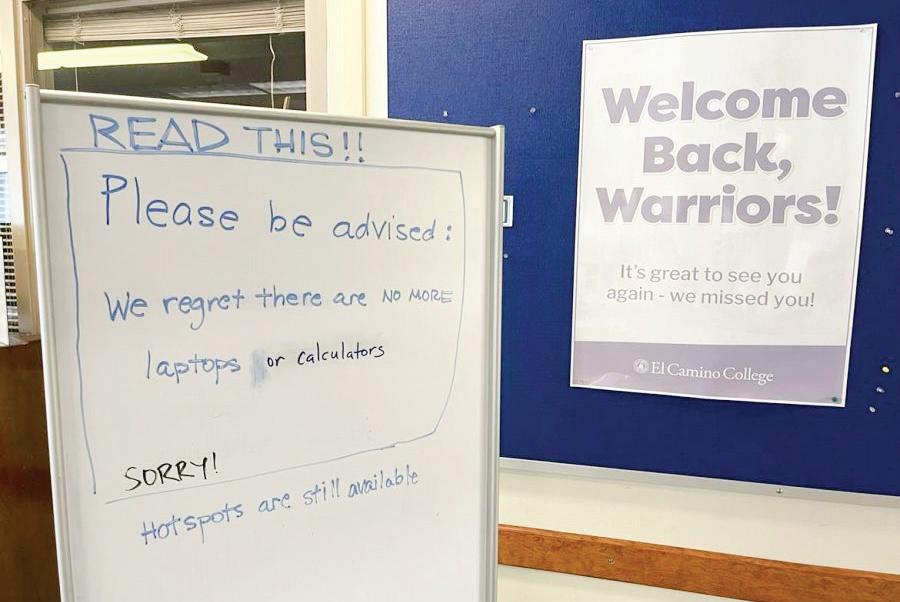 READ THIS!!
Please be advised:
We regret there are NO MORE
laptops or calculators
SORRY!
Hotspots are still available
Welcome
Back,
Warriors!
It's great to see you
again - we missed you!
El Camino College